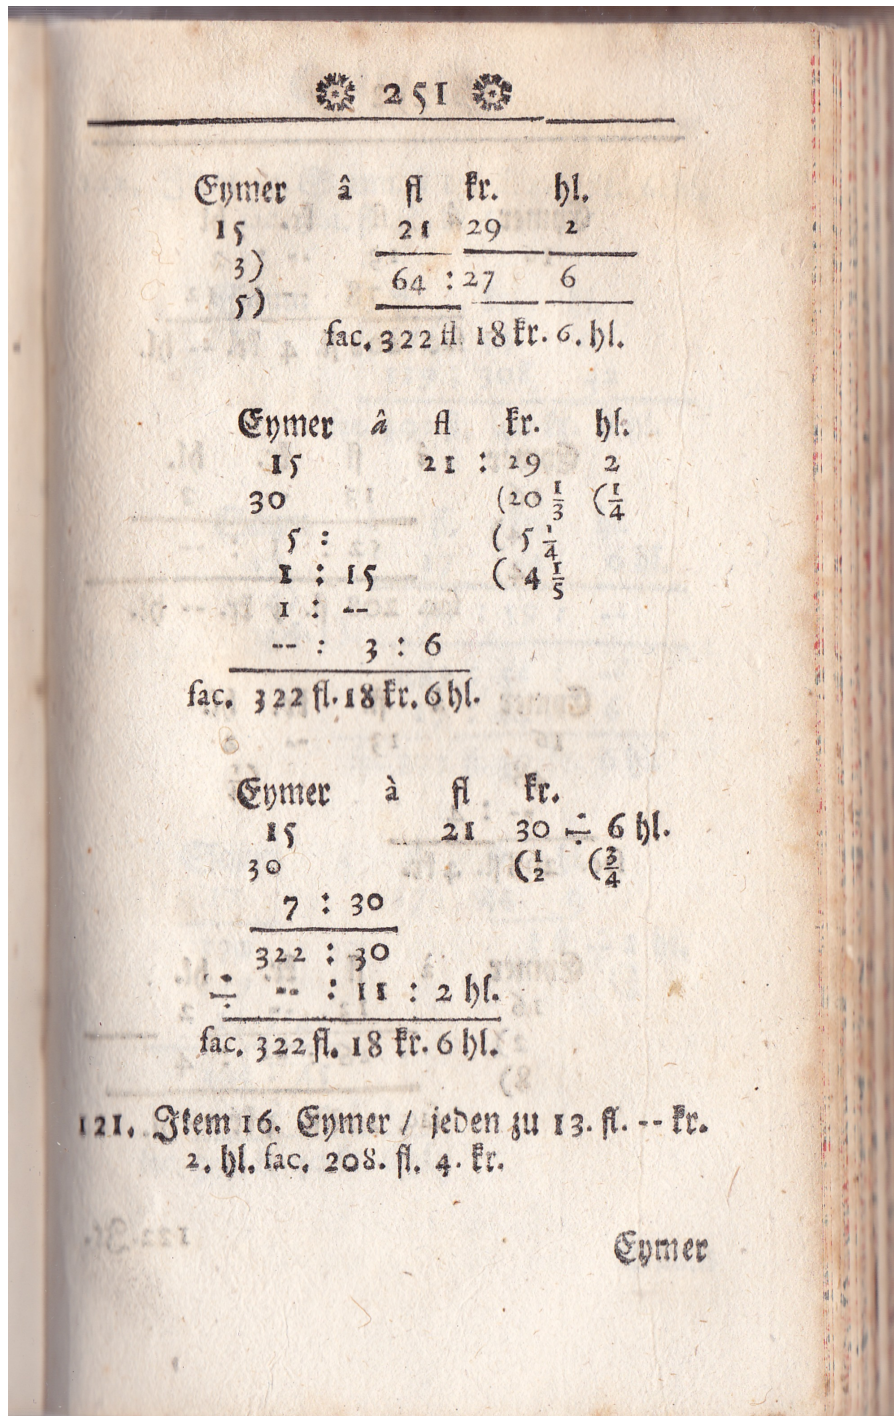 251
Eymer â fl kr. hl.
15 21 29 2
3) 64 : 27 6
5)
fac. 322 fl 18 kr. 6. hl.
Eymer â fl kr. hl.
15 21 : 29 2
30 (20 1/3 (1/4
5 : ( 5 1/4
1 : 15 ( 4 1/5
1 : --
-- : 3 : 6
fac. 322 fl. 18 kr. 6 hl.
Eymer à fl kr.
15 21 30 ÷ 6 hl.
30 (1/2 (3/4
7 : 30
322 : 30
÷ -- : 11 : 2 hl.
fac. 322 fl. 18 kr. 6 hl.
121. Item 16. Eymer / jeden zu 13. fl. -- kr.
2. hl. fac. 208. fl. 4. kr.
Eymer